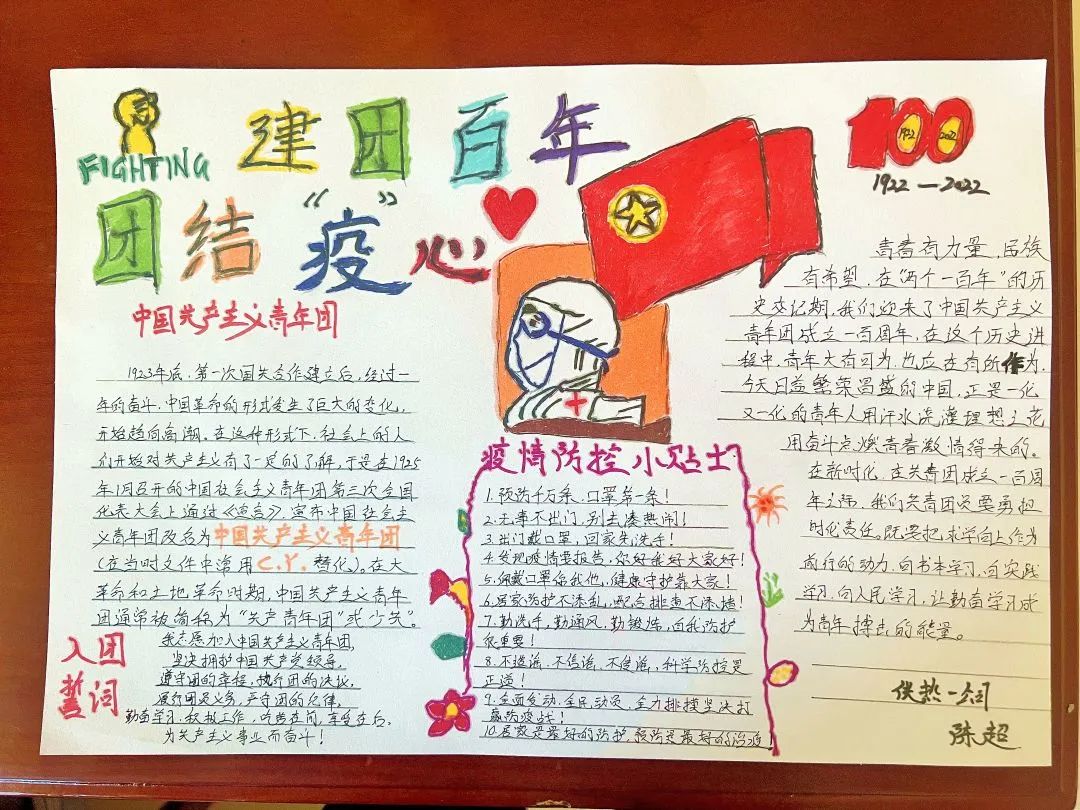 FIGHTING
建团百年
100
1922
2022
1922—2022
团结“疫”心
中国共产主义青年团
1923年底,第一次国共合作建立后,经过一
年的奋斗,中国革命的形式发生了巨大的变化,
开始趋向高潮。在这种形式下,社会上的人
们开始对共产主义有了一定的了解,于是在1925
年1月召开的中国社会主义青年团第三次全国
代表大会上通过《宣言》,宣布中国社会主
义青年团改名为中国共产主义青年团
(在当时文件中常用C.Y.替化)。在大
革命和土地革命时期,中国共产主义青年
团通常被简称为“共产青年团”或“少共”。
入团
誓词
我志愿加入中国共产主义青年团,
坚决拥护中国共产党领导,
遵守团的章程,执行团的决议,
履行团员义务,严守团的纪律,
勤奋学习,积极工作,吃苦在前,享受在后,
为共产主义事业而奋斗!
疫情防控小贴士
1.预防千万条,口罩第一条!
2.无事不出门,别去凑热闹!
3.出门戴口罩,回家先洗手!
4.发现疫情要报告,你好我好大家好!
5.佩戴口罩你我他,健康守护靠大家!
6.居家防护不添乱,配合排查不添堵!
7.勤洗手,勤通风,勤锻炼,自我防护
很重要!
8.不造谣,不信谣,不传谣,科学防控是
正道!
9.全面发动,全民动员,全力排摸坚决打
赢防疫战!
10.居家是最好的防护,预防是最好的治疗
青春有力量,民族
有希望,在“两个一百年”的历
史交汇期,我们迎来了中国共产主义
青年团成立一百周年,在这个历史进
程中,青年大有可为,也应在有所作为,
今天日益繁荣昌盛的中国,正是一代
又一代的青年人用汗水浇灌理想之花
用奋斗点燃青春激情得来的。
在新时代,在共青团成立一百周
年之际,我们共青团员要勇担
时代责任。既要把求学向上作为
前行的动力,向书本学习,向实践
学习,向人民学习,让勤奋学习成
为青年搏击的能量。
供热一公司
陈超